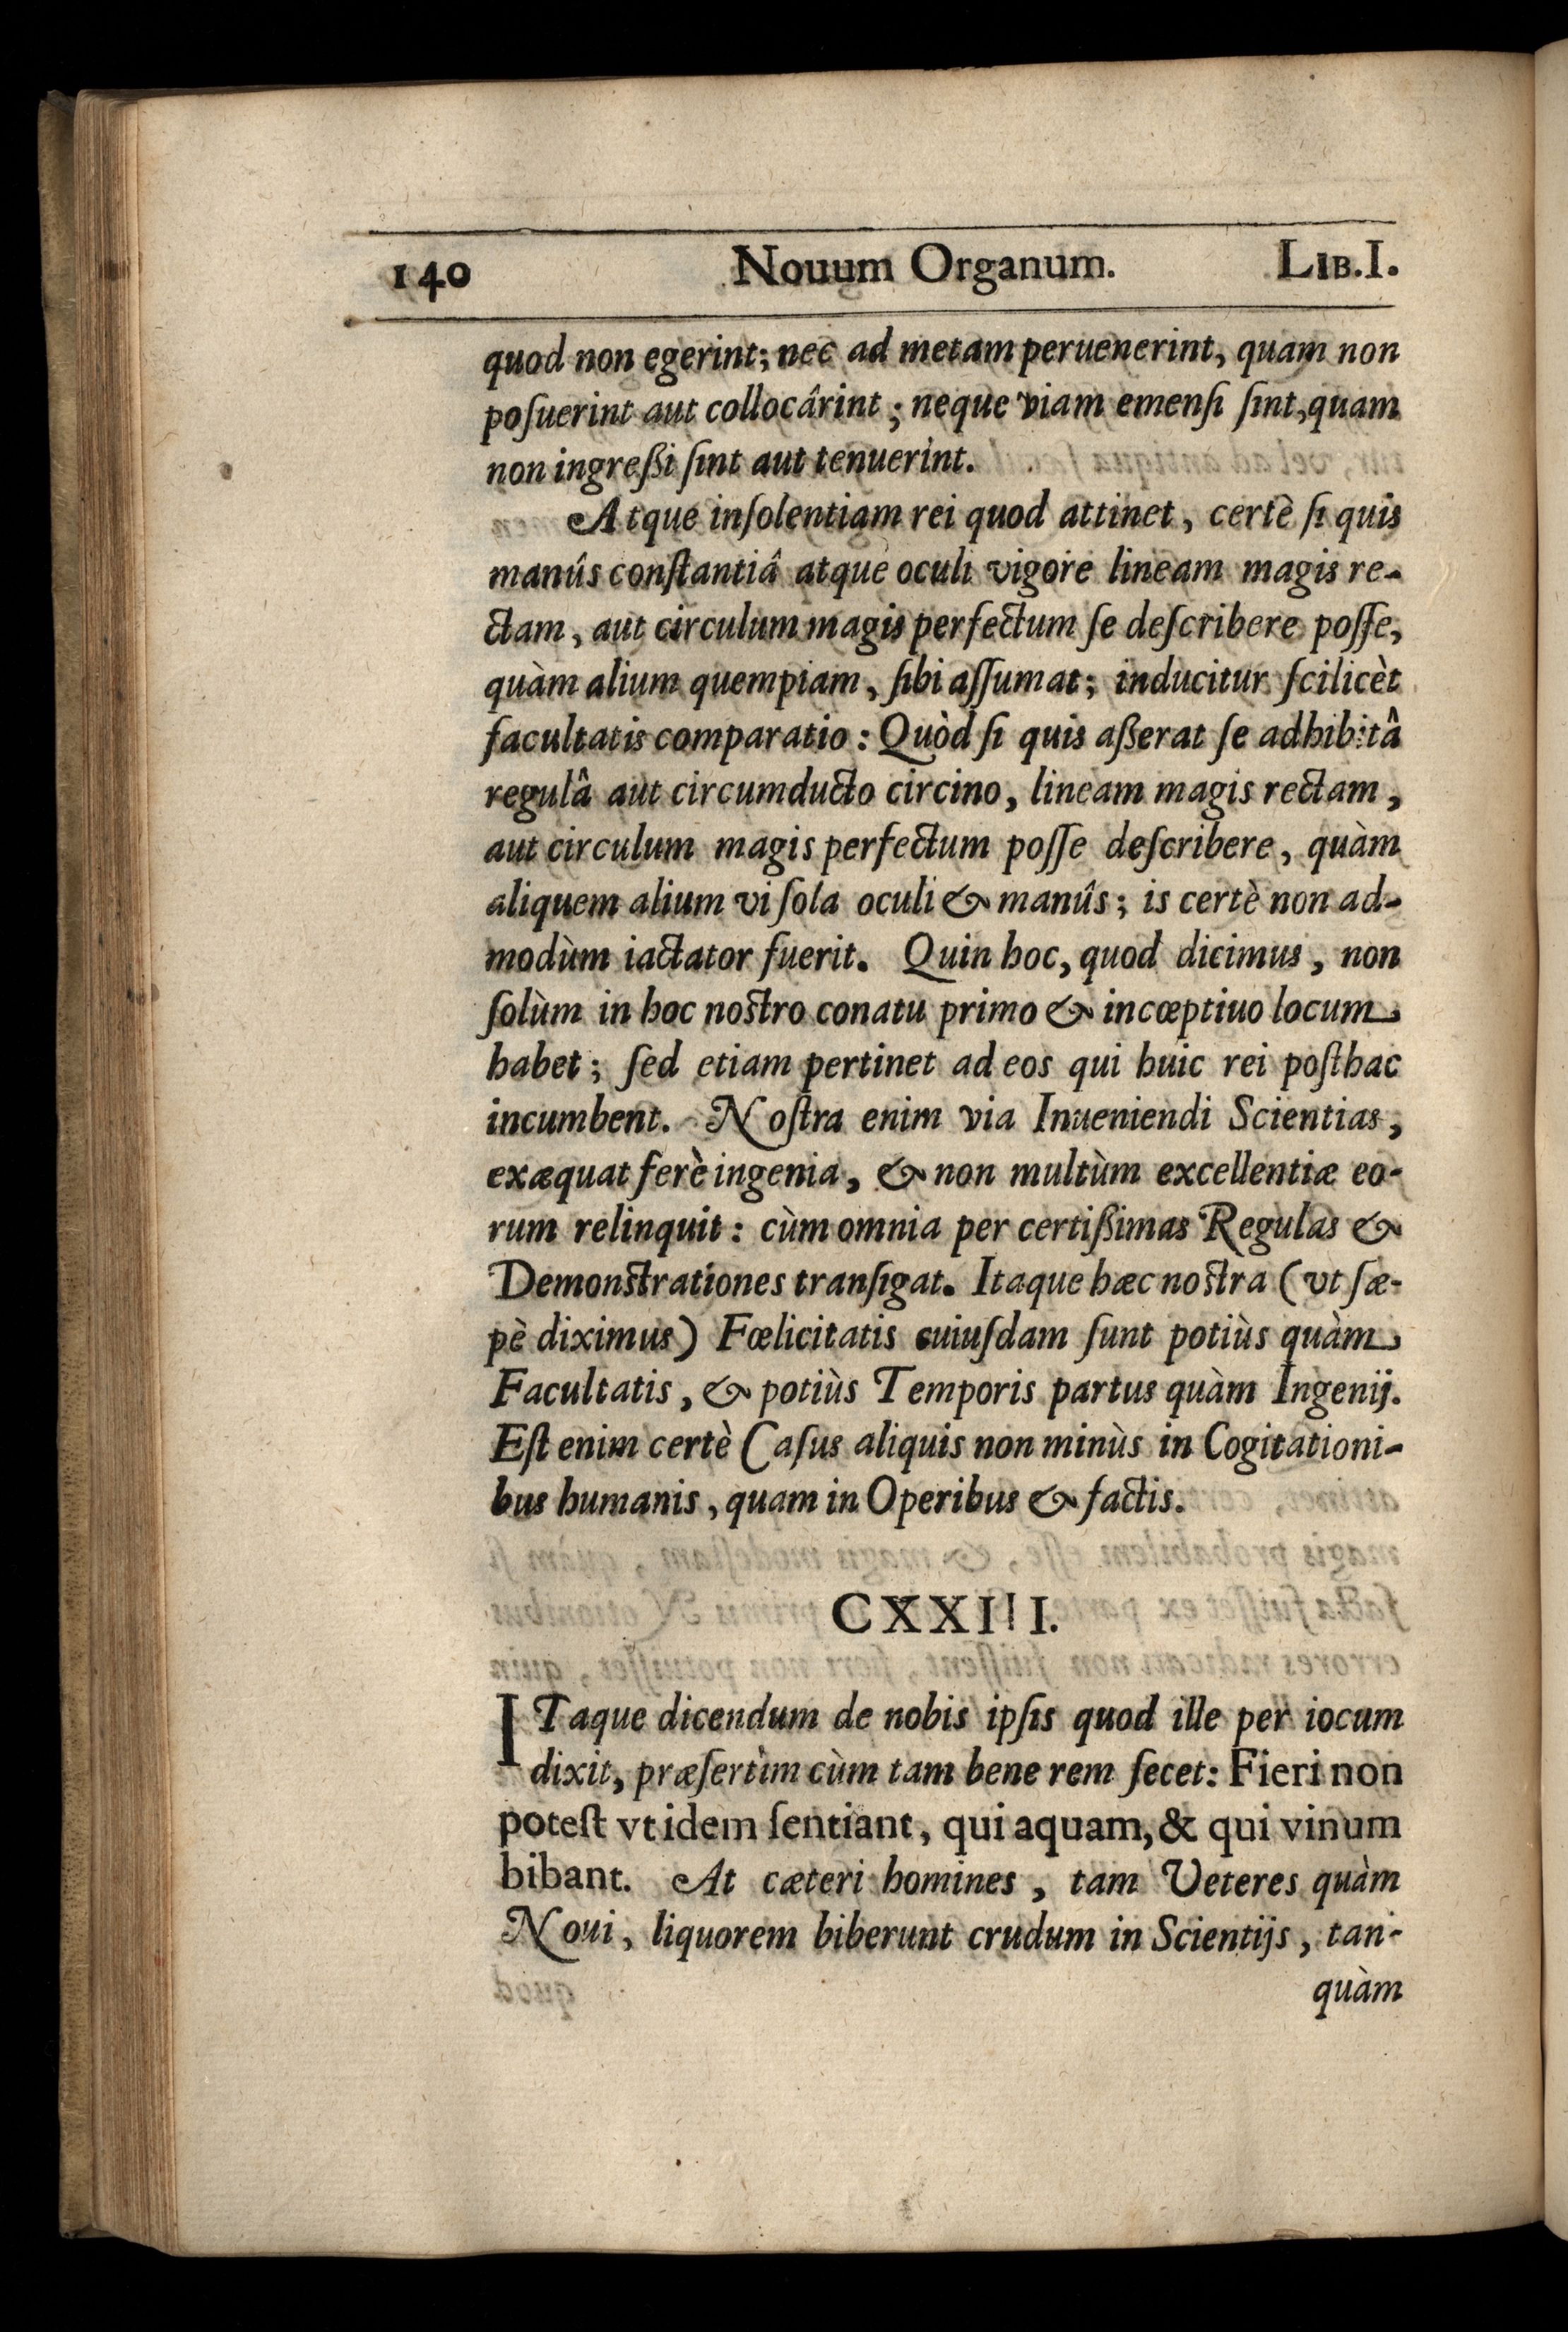 140 Nouum Organum. LIB.I.
quod non egerint; nec ad metam peruenerint, quam non
poſuerint aut collocârint; neque viam emenſi ſint, quam
non ingreßi ſint aut tenuerint.
Atque inſolentiam rei quod attinet, certè ſi quis
manûs conſtantiâ atque oculi vigore lineam magis re-
ctam, aut circulum magis perfectum ſe deſcribere poſſe,
quàm alium quempiam, ſibi aſſumat; inducitur ſcilicèt
facultatis comparatio: Quòd ſi quis aßerat ſe adhibitâ
regulâ aut circumducto circino, lineam magis rectam,
aut circulum magis perfectum poſſe deſcribere, quàm
aliquem alium vi ſola oculi & manûs; is certè non ad-
modùm iactator fuerit. Quin hoc, quod dicimus, non
ſolùm in hoc noſtro conatu primo & incœptiuo locum
habet; ſed etiam pertinet ad eos qui huic rei poſthac
incumbent. Noſtra enim via Inueniendi Scientias,
exæquat ferè ingenia, & non multùm excellentiæ eo-
rum relinquit: cùm omnia per certißimas Regulas &
Demonſtrationes tranſigat. Itaque hæc noſtra (vt ſæ-
pè diximus) Fœlicitatis cuiuſdam ſunt potiùs quàm
Facultatis, & potiùs Temporis partus quàm Ingenij.
Eſt enim certè Caſus aliquis non minùs in Cogitationi-
bus humanis, quam in Operibus & factis.
CXXIII.
ITaque dicendum de nobis ipſis quod ille per iocum
dixit, præſertìm cùm tam bene rem ſecet: Fieri non
poteſt vt idem ſentiant, qui aquam, & qui vinum
bibant. At cæteri homines, tam Veteres quàm
Noui, liquorem biberunt crudum in Scientijs, tan-
quàm